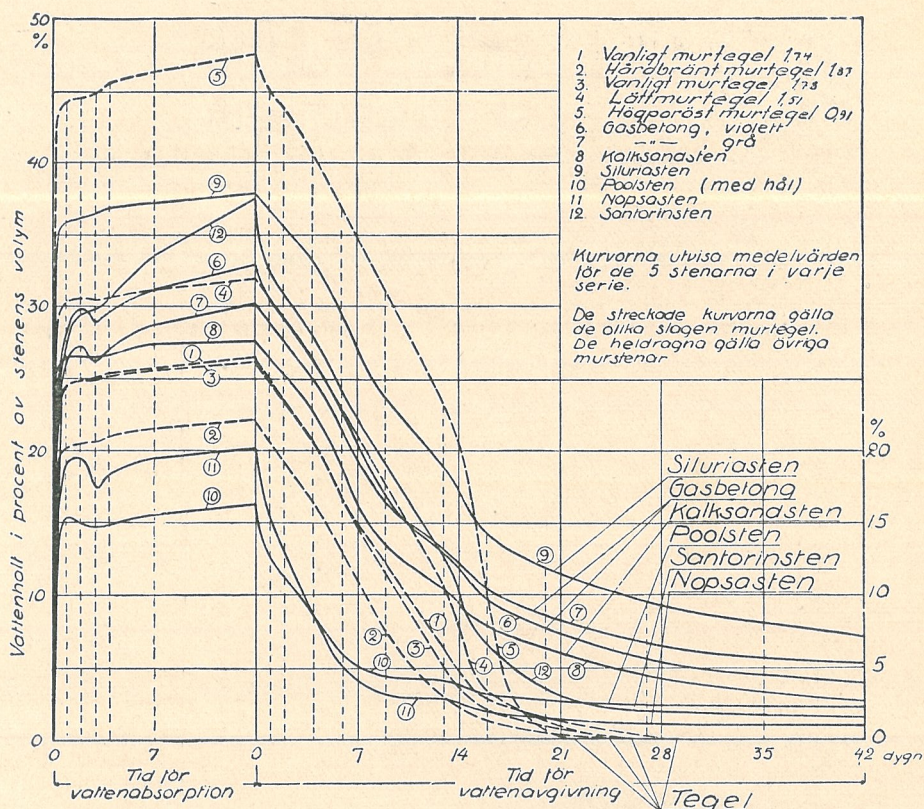 50
%
40
30
20
10
0
Vattenhalt i procent av stenens volym
1 Vanligt murtegel 1,74
2. Hårdbränt murtegel 1,87
3. Vanligt murtegel 1,78
4 Lättmurtegel 1,51
5. Högporöst murtegel 0,91
6. Gasbetong, violett
7 —"— , grå
8 Kalksandsten
9. Siluriasten
10 Poolsten (med hål)
11 Nopsasten
12 Santorinsten
Kurvorna utvisa medelvärden
för de 5 stenarna i varje
serie.
De streckade kurvorna gälla
de olika slagen murtegel.
De heldragna gälla övriga
murstenar
5
9
12
6
4
7
8
1
3
2
11
10
%
20
15
10
5
0
Siluriasten
Gasbetong
Kalksandsten
Poolsten
Santorinsten
Nopsasten
9
7
6
8
12
5
4
1
3
2
10
11
0 7 0 7 14 21 28 35 42 dygn
Tid för
vattenabsorption
Tid för
vattenavgivning
Tegel